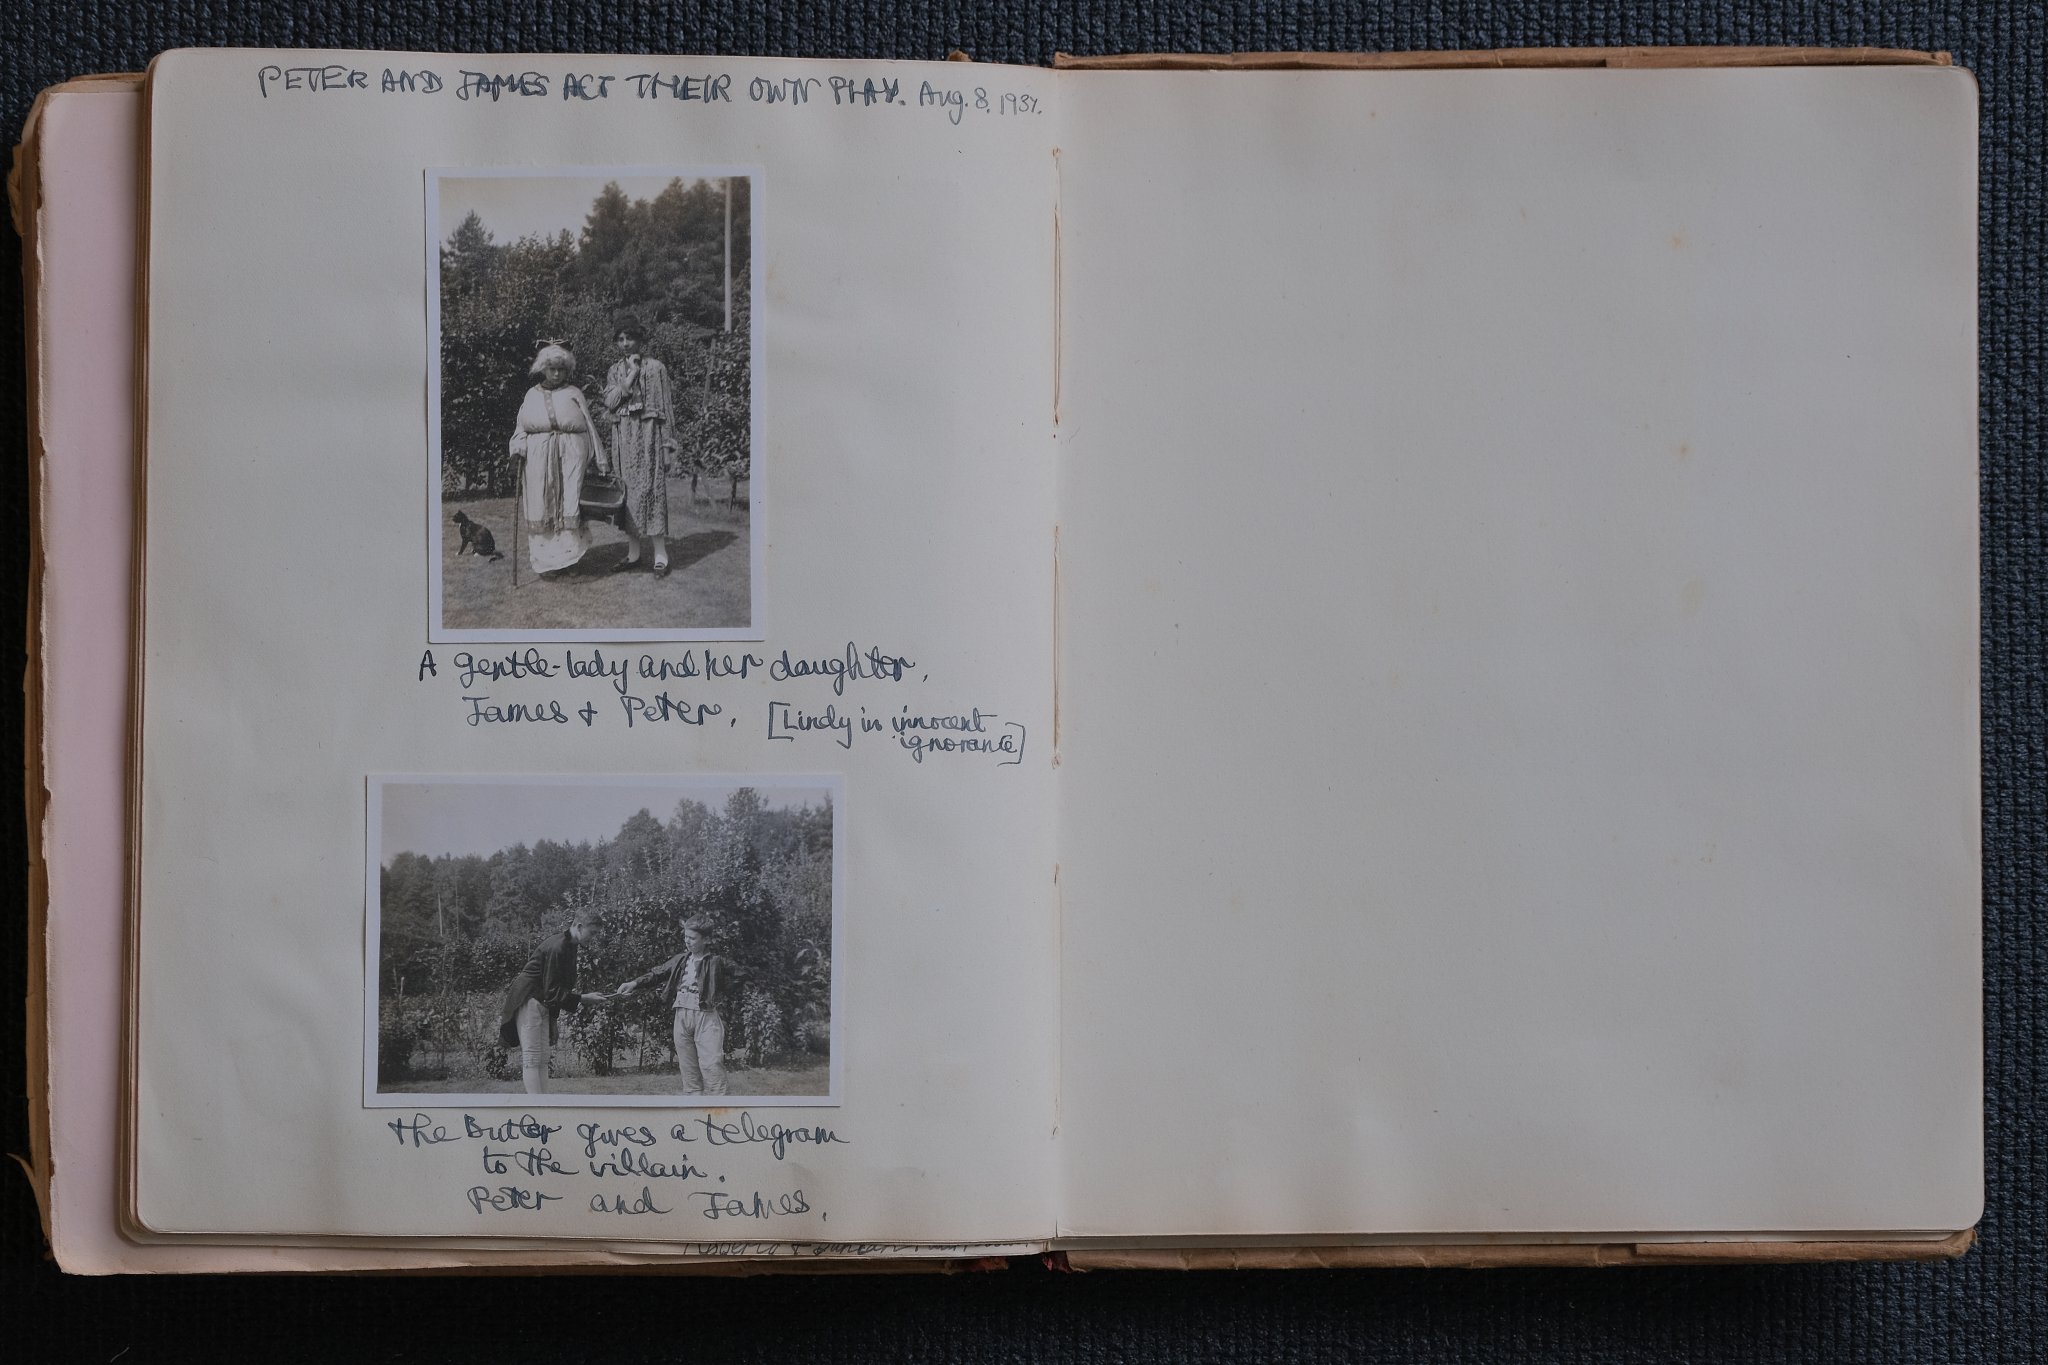 PETER AND JAMES ACT THEIR OWN PLAY. Aug. 8. 1937.
A gentle-lady and her daughter.
James & Peter. [Lindy in innocent
ignorance]
the Butler gives a telegram
to the villain.
Peter and James.